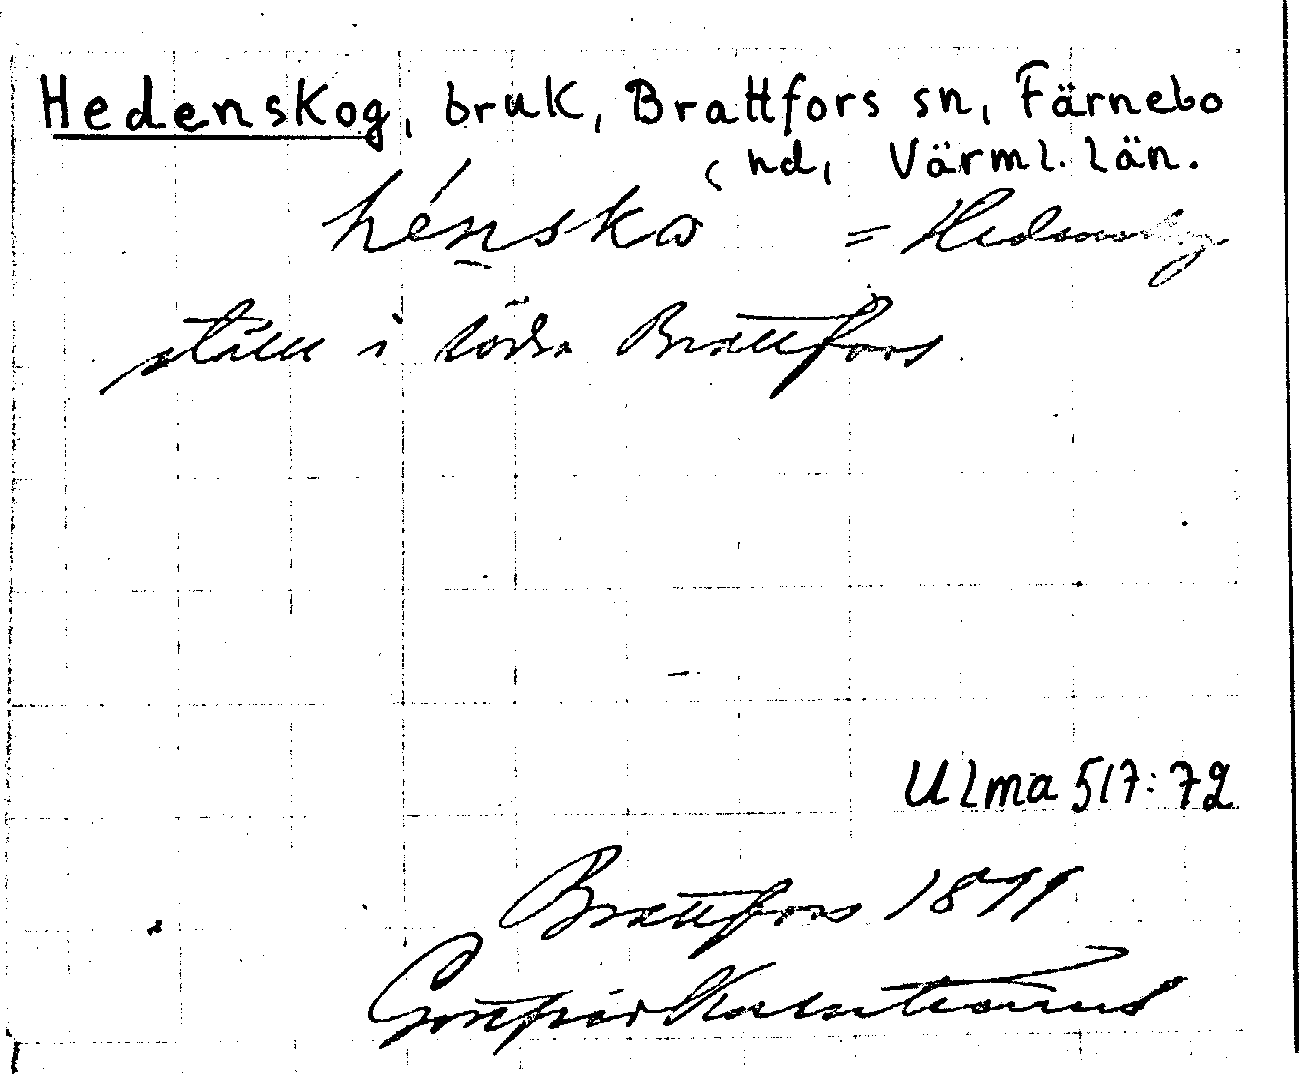 Hedenskog, bruk, Brattfors sn, Färnebo
hd, Värml. län.
hénskω = Hedenskog
ställe i södra Brattfors
Ulma 517:72
Brattfors 1877
Gottfrid Kallstenius